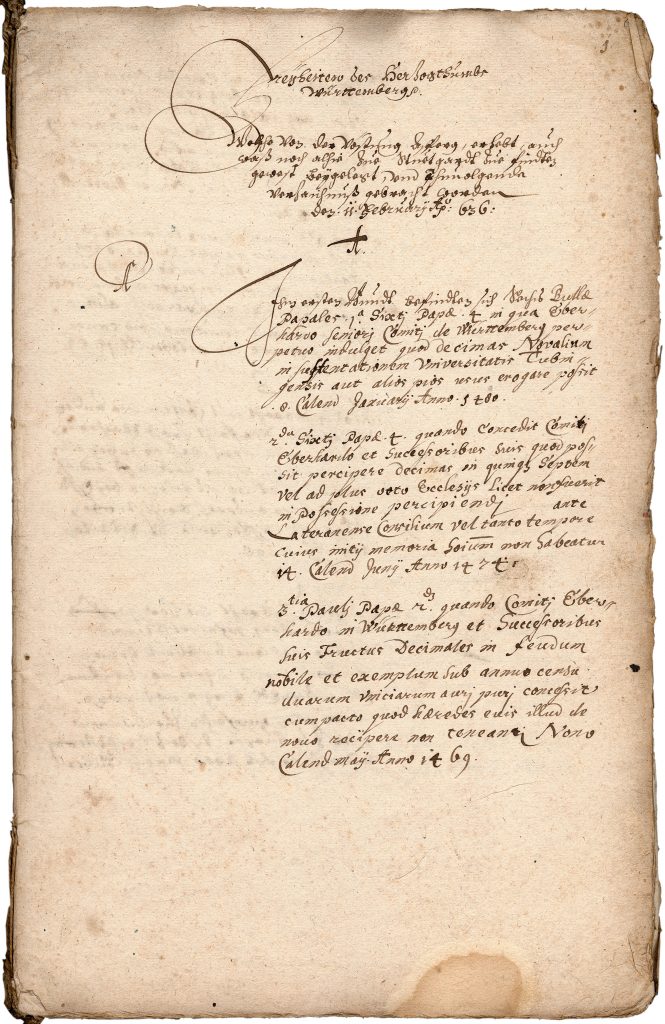 1
Freyheiten des Herzogthumbs
Württembergs.
Welche von der Vöstung Asperg, erhebt, auch
waß noch alhie zue Stuetgardt zue finden
gewest beygelegt, vnd Ihnvolgende
verzaichnuß gebracht worden
den 11. February Ao: 636:
A.
A
Ihm ersten Bundt befindten sich Sechs Bullæ
Papales 1.a Sixtj Papæ. 4 in qua Eber-
hardo seniorj Comitj de Württemberg per-
petuo indulget quod decimas Novalium
in sustentationem Vniversitatis Tubin-
gensis aut alios pios usus erogare possit
8. Calend January Anno. 1480.
2.da Sixtj Papæ. 4. quando concedit Comitj
Eberhardo et Successoribus suis quod pos-
sit percipere decimas in quinq Septem
vel ad plus octo Ecclesys licet non fuerit
in Possessione percipiendj ante
Lateranense Consilium vel tanto tempore
cuius initij memoria hoium non habeatur
14. Calend Junij Anno 1474.
3.tia Paulj Papæ 2.dj quando Comitj Eber-
hardo in Württemberg et Successoribus
suis Fructus Decimales in feudum
nobile et exemptum sub annuo censu
duarum vnciarum auri puri concessit
cum pacto quod hæredes euis illud de
novo recipere non teneantj Nono
Calend maÿ Anno 1469.